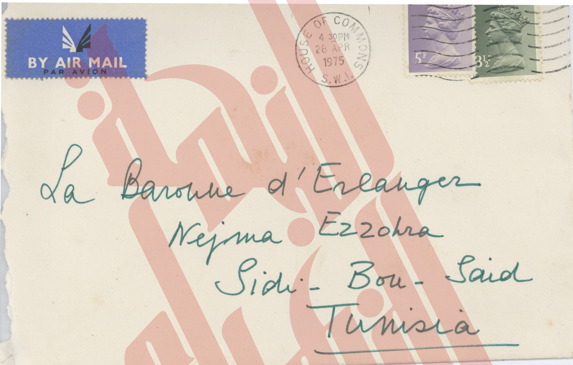 BY AIR MAIL
PAR AVION
HOUSE OF COMMONS
4 30PM
28 APR
1975
S.W.1.
5P
3½
La Baronne d'Erlanger
Nejma Ezzohra
Sidi - Bou - Said
Tunisia